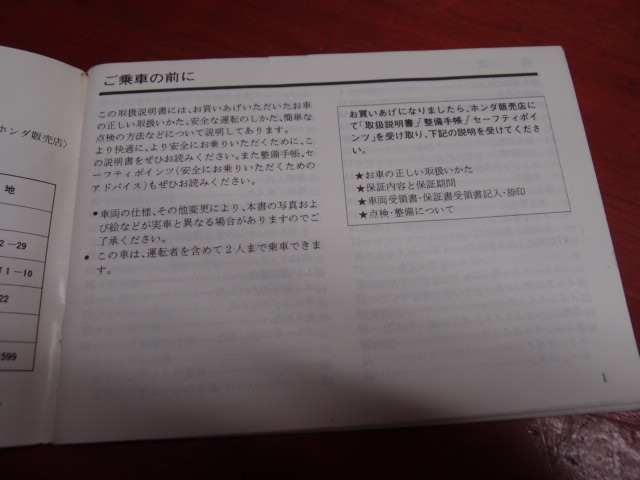 ホンダ販売店〉
地
2－29
T1－10
22
599
ご乗車の前に
この取扱説明書には、お買いあげいただいたお車
の正しい取扱いかた、安全な運転のしかた、簡単な
点検の方法などについて説明してあります。
より快適に、より安全にお乗りいただくために、こ
の説明書をぜひお読みください。また整備手帳、セー
フティポインツ(安全にお乗りいただくための
アドバイス)もぜひお読みください。
●車両の仕様、その他変更により、本書の写真およ
び絵などが実車と異なる場合がありますのでご
了承ください。
● この車は、運転者を含めて2人まで乗車できま
す。
お買いあげになりましたら、ホンダ販売店に
て「取扱説明書」「整備手帳」「セーフティポイ
ンツ」を受け取り、下記の説明を受けてくださ
い。
★お車の正しい取扱いかた
★保証内容と保証期間
★車両受領書・保証書受領書記入・捺印
★点検・整備について
1